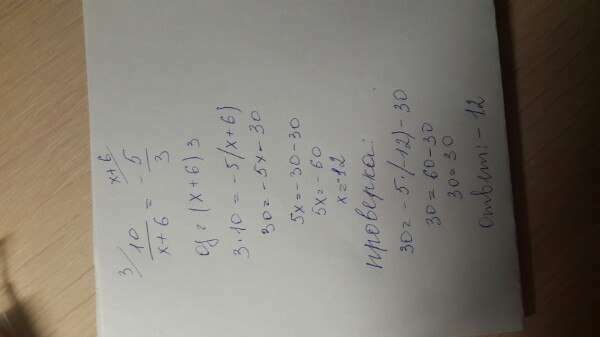 3/ 10/(x+6) = x+6/ -5/3
оз: (x+6) 3
3·10=-5(x+6)
30=-5x-30
5x=-30-30
5x=-60
x=-12
проверка:
30=-5·(-12)-30
30=60-30
30=30
ответ: -12